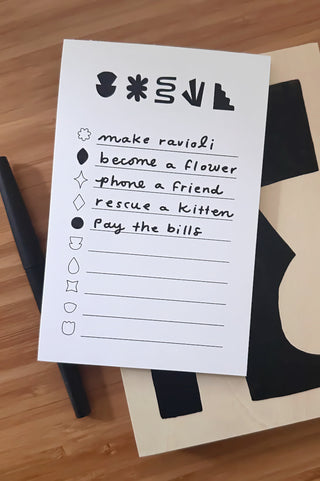 make ravioli
become a flower
phone a friend
rescue a kitten
pay the bills